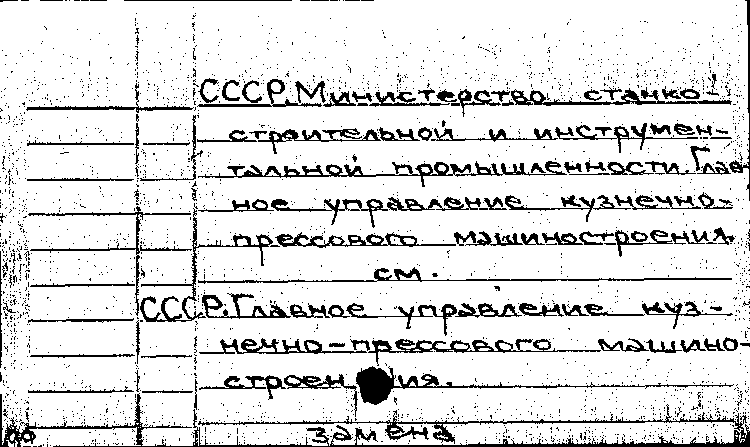 СССР. Министерство станко-
строительной и инструмен-
тальной промышленности. Глав-
ное управление кузнечно-
прессового машиностроения.
см.
СССР. Главное управление куз-
нечно-прессового машино-
строения.
замена